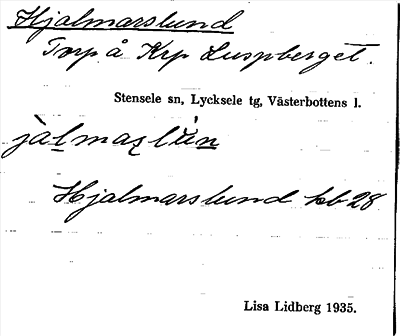 Hjalmarslund
Torp å Krp Luspberget.
Stensele sn, Lycksele tg, Västerbottens l.
Hjalmarslund kb 28
Lisa Lidberg 1935.